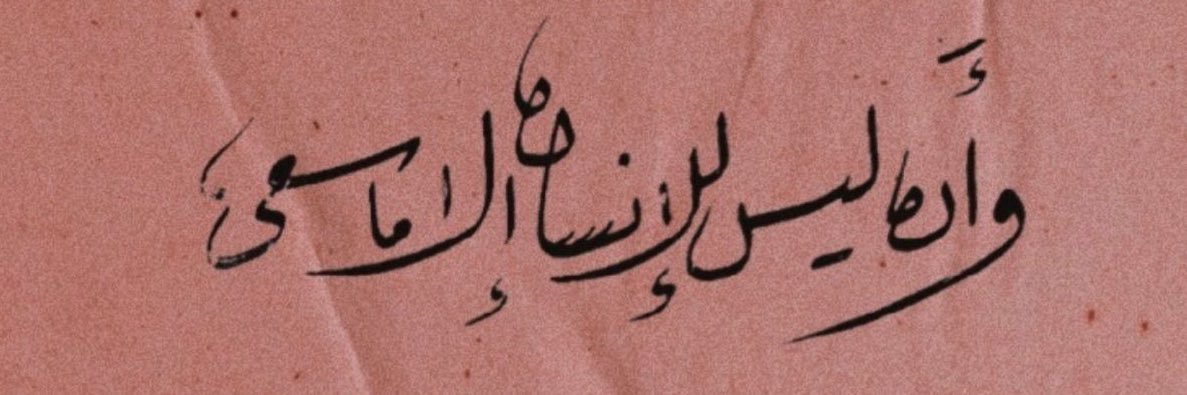 وَأَن ليس للإنسان إلا ما سعى